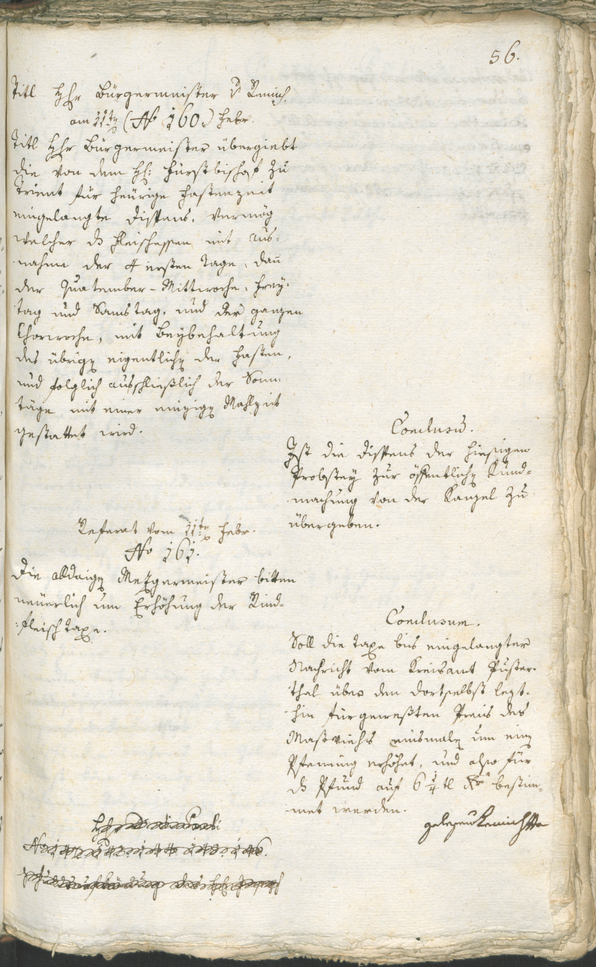 56.
Titl Hr Bürgermeister v Kemich.
am 11ten (No 160.) Febr.
Titl Hr Bürgermeister übergiebt
die von dem H: Fürstbischof zu
Trient für heurige Fastenzeit
eingelangte Dispens, vermög
welcher ds Fleischessen mit Aus-
nahm der 4 ersten Tage, dan
der Quatember-Mittwoche, Frey-
tag und Samstag, und der ganzen
Charwoche, mit Beybehaltung
des übrigen eigentlichen der Fasten,
und folglich ausschließlich der Son-
täge mit einer einzigen Mahlzeit
gestattet wird.
Conclusum.
Ist die Dispens der hiesigen
Probstey zur öffentlichen Kund-
machung von der Kanzel zu
übergeben.
Referat vom 11ten Febr.
No 161.
Die alldaigen Metzgermeister bitten
neuerlich um Erhöhung der Rind-
fleisch Taxe.
Conclusum.
Soll die Taxe bis eingelangter
Nachricht vom Kreisamt Puster-
thal über den dortselbst letzt-
hin fürgewesten Preis des
Mastviehs einsmalen um ein
Pfenning erhöhet, und also für
ds Pfund auf 6 1/4tl Xr bestim-
met werden.